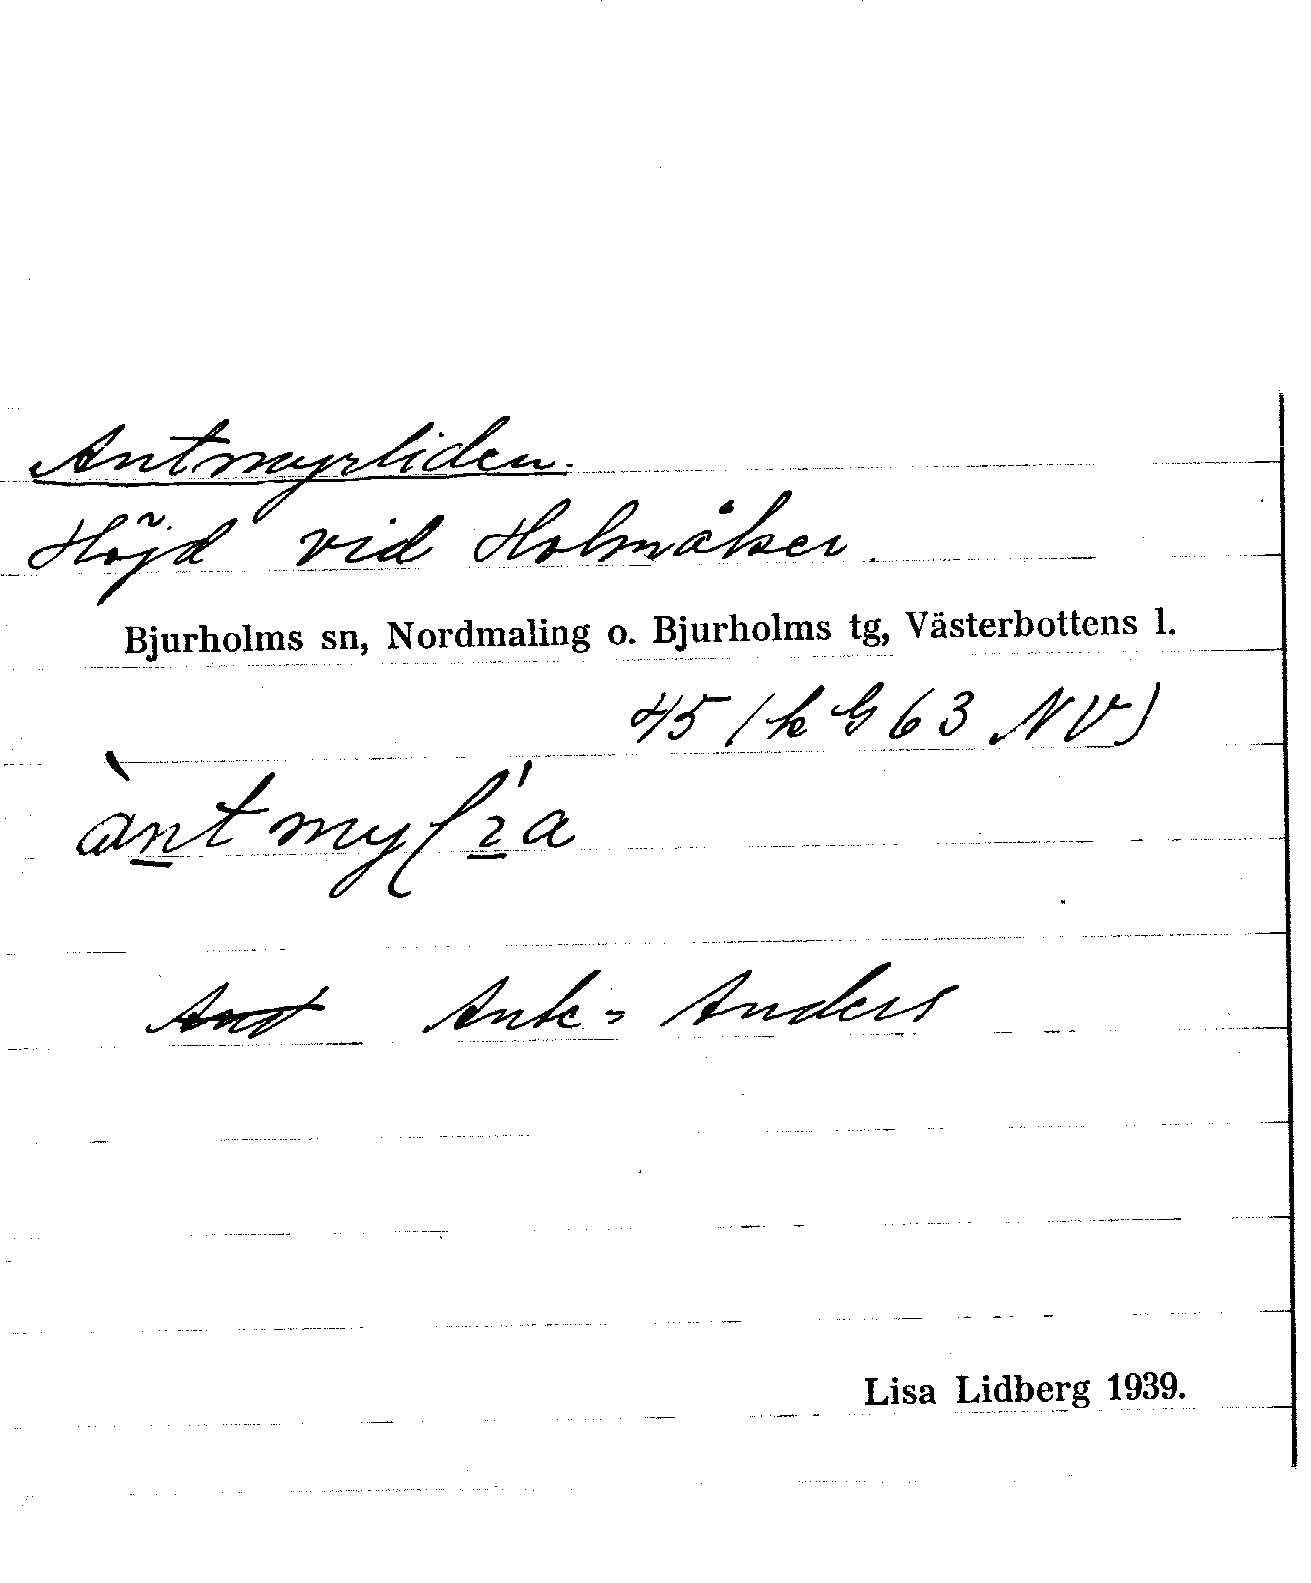 Antmyrliden.
Höjd vid Holmåker.
Bjurholms sn, Nordmaling o. Bjurholms tg, Västerbottens l.
45 (k G 63 NV)
Ant Ante = Anders
Lisa Lidberg 1939.